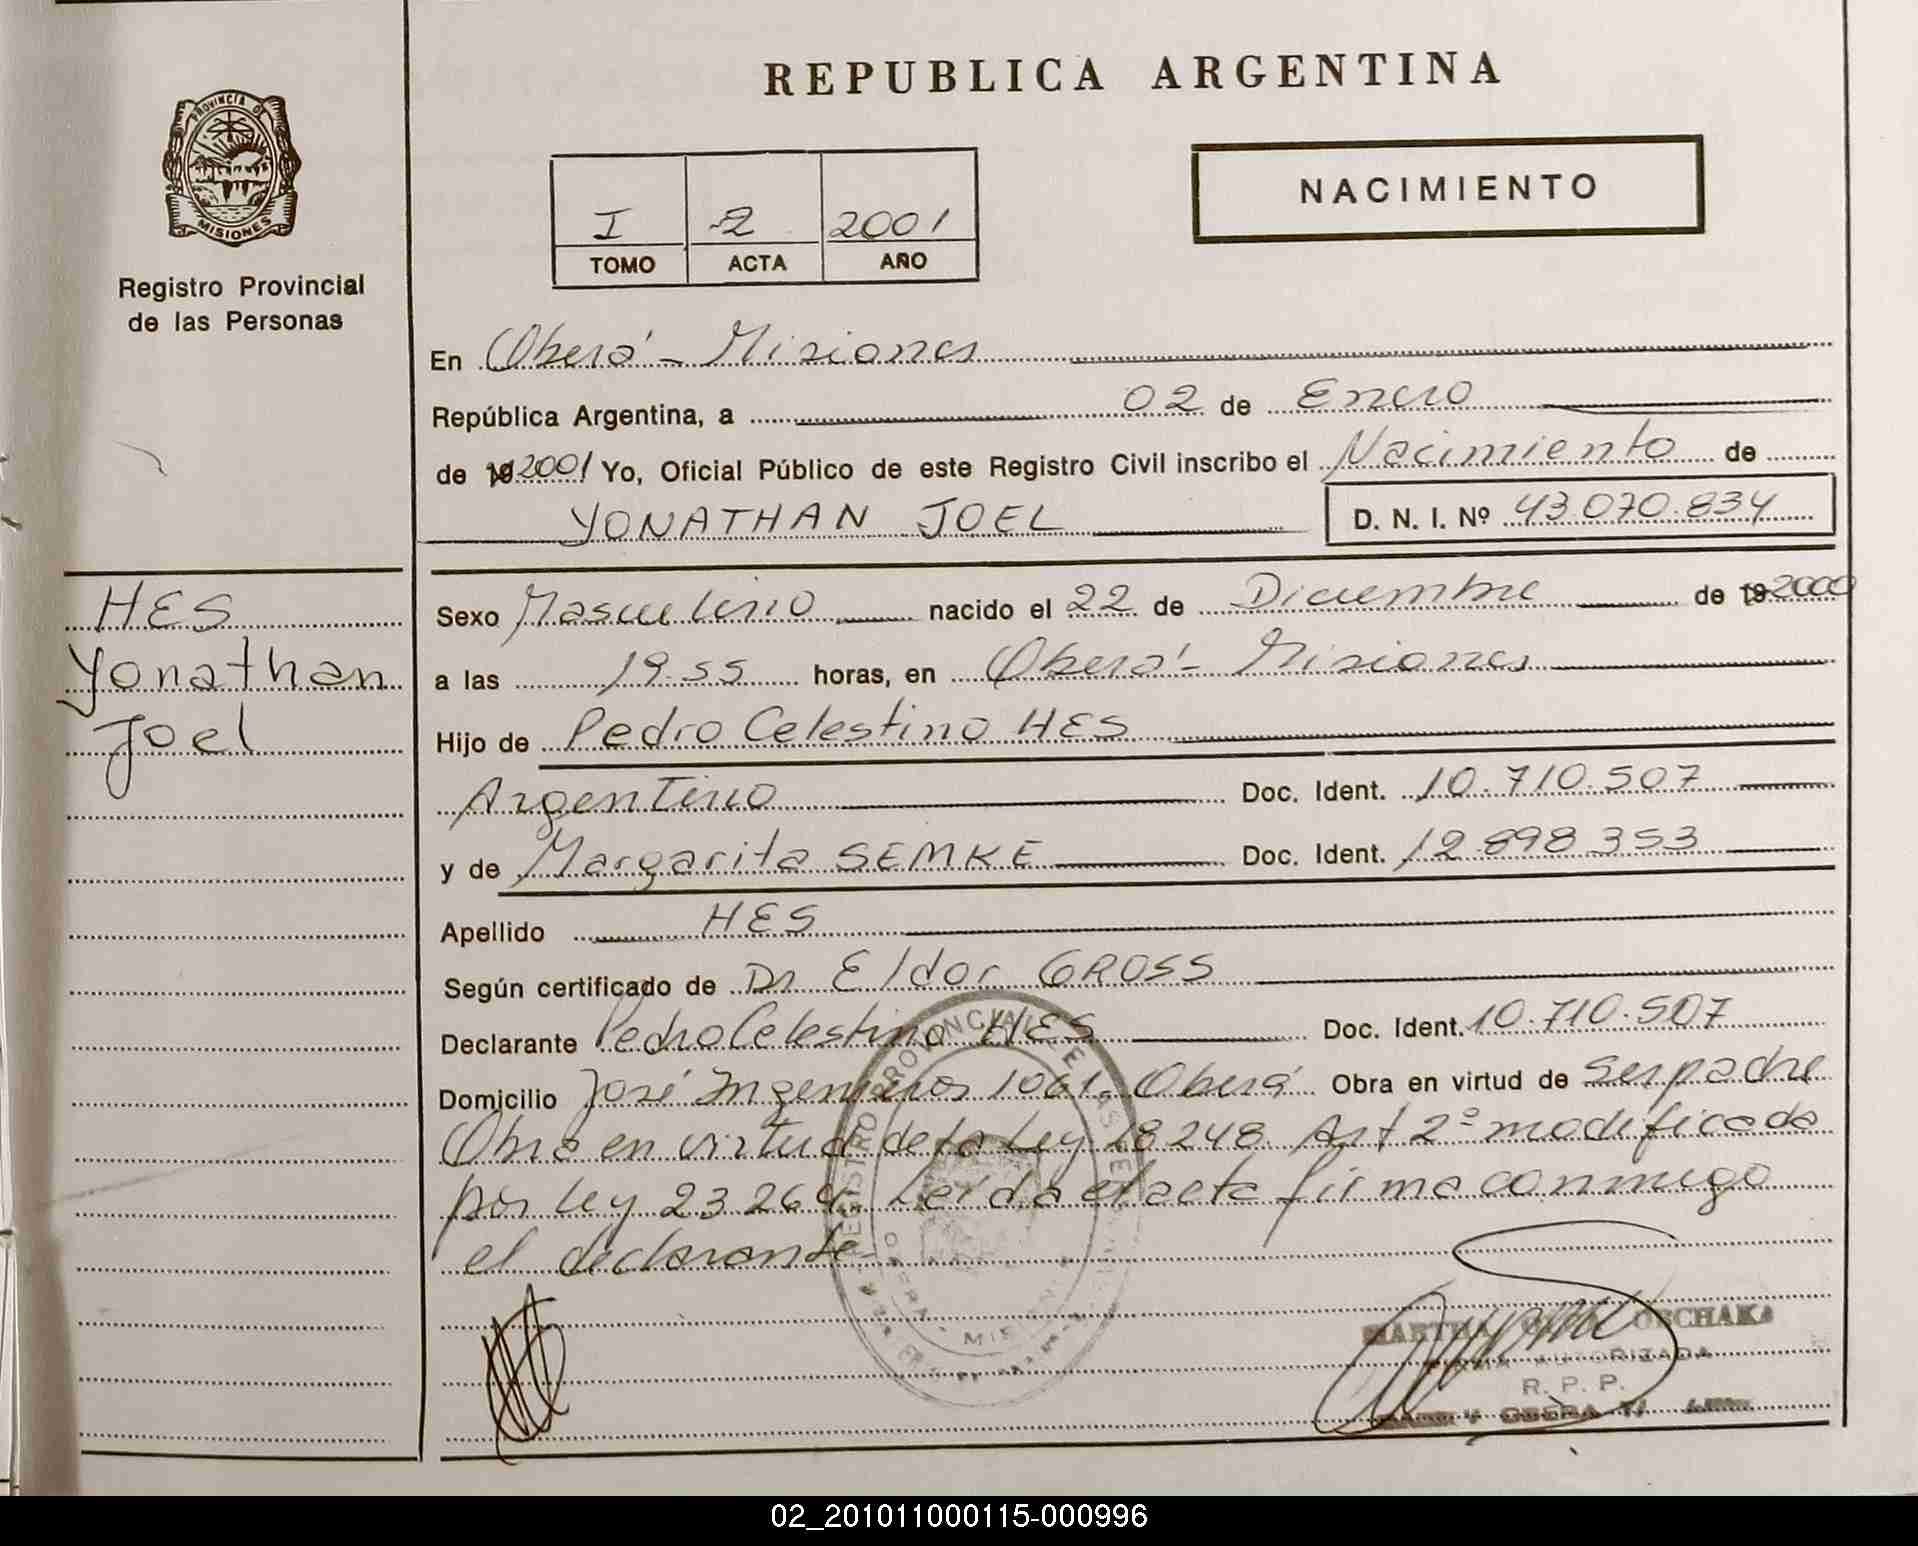 PROVINCIA DE
MISIONES
Registro Provincial
de las Personas
HES
Yonathan
Joel
REPUBLICA ARGENTINA
I 2 2001
TOMO ACTA AÑO
NACIMIENTO
En Oberá - Misiones
República Argentina, a 02 de Enero
de 19 2001 Yo, Oficial Público de este Registro Civil inscribo el Nacimiento de
YONATHAN JOEL D. N. I. Nº 43.070.834
Sexo Masculino nacido el 22 de Diciembre de 19 2000
a las 19.55 horas, en Oberá - Misiones
Hijo de Pedro Celestino HES
Argentino Doc. Ident. 10.710.507
y de Margarita SEMKE Doc. Ident. 12.898.353
Apellido HES
Según certificado de Dr Eldor GROSS
Declarante Pedro Celestino HES Doc. Ident. 10.710.507
Domicilio José Ingenieros 1061 - Oberá Obra en virtud de Ser padre
Obra en virtud de la Ley 18248 Art 2º modificada
por Ley 23264. Leída el acta firma conmigo
el declarante-
REGISTRO PROVINCIAL DE LAS
OBERA - MISIONES
MARTHA
FIRMA AUTORIZADA
R. P. P.
OBERA
02_201011000115-000996